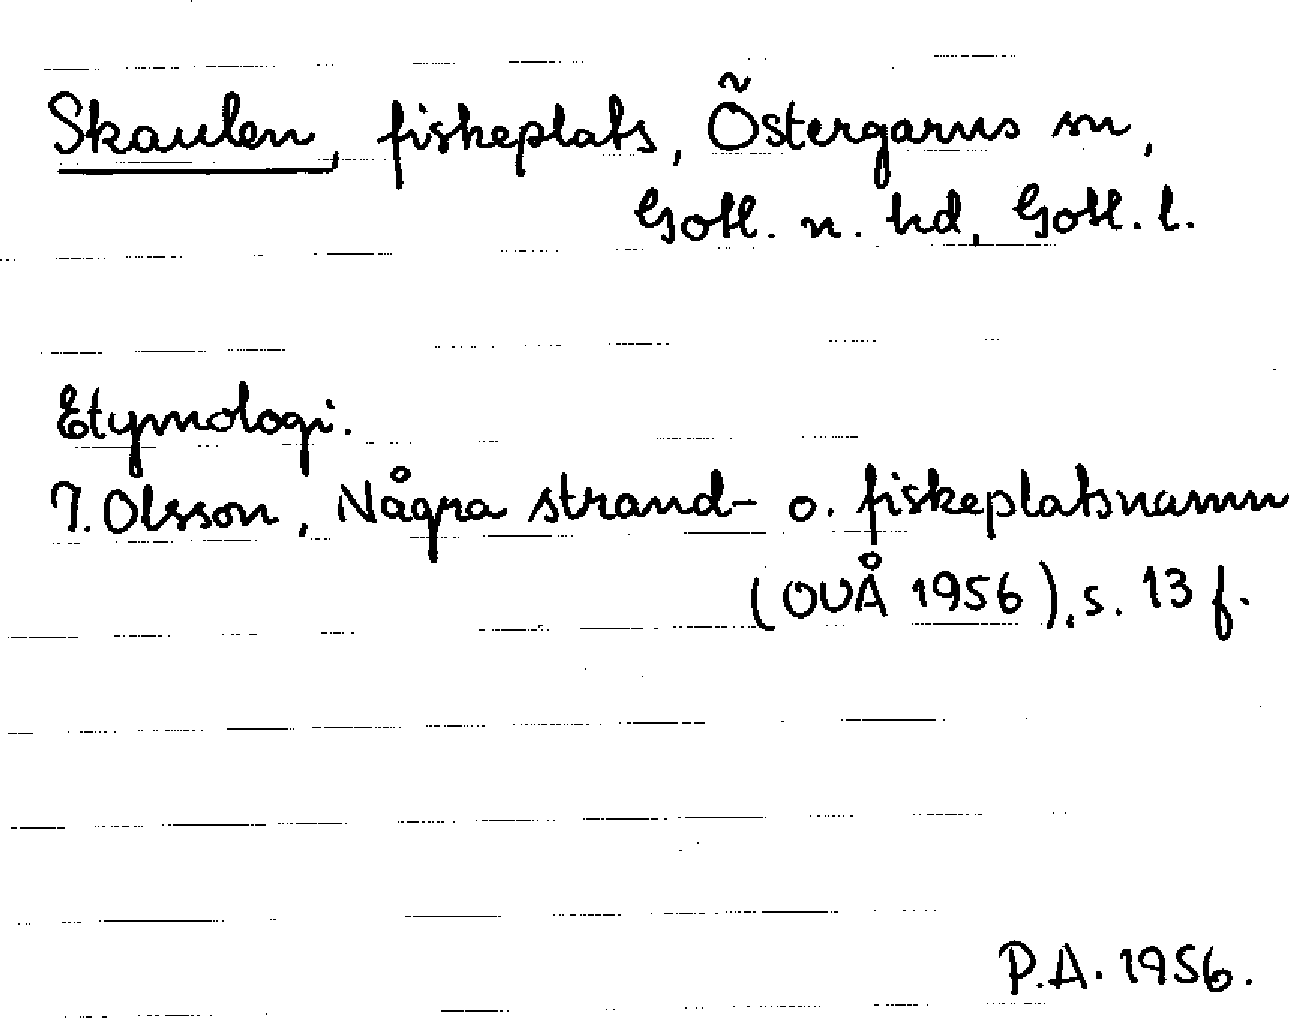 Skaulen, fiskeplats, Östergarns sn,
Gotl. n. hd, Gotl. l.
Etymologi.
I. Olsson, Några strand- o. fiskeplatsnamn
(OUÅ 1956), s. 13 f.
P.A. 1956.